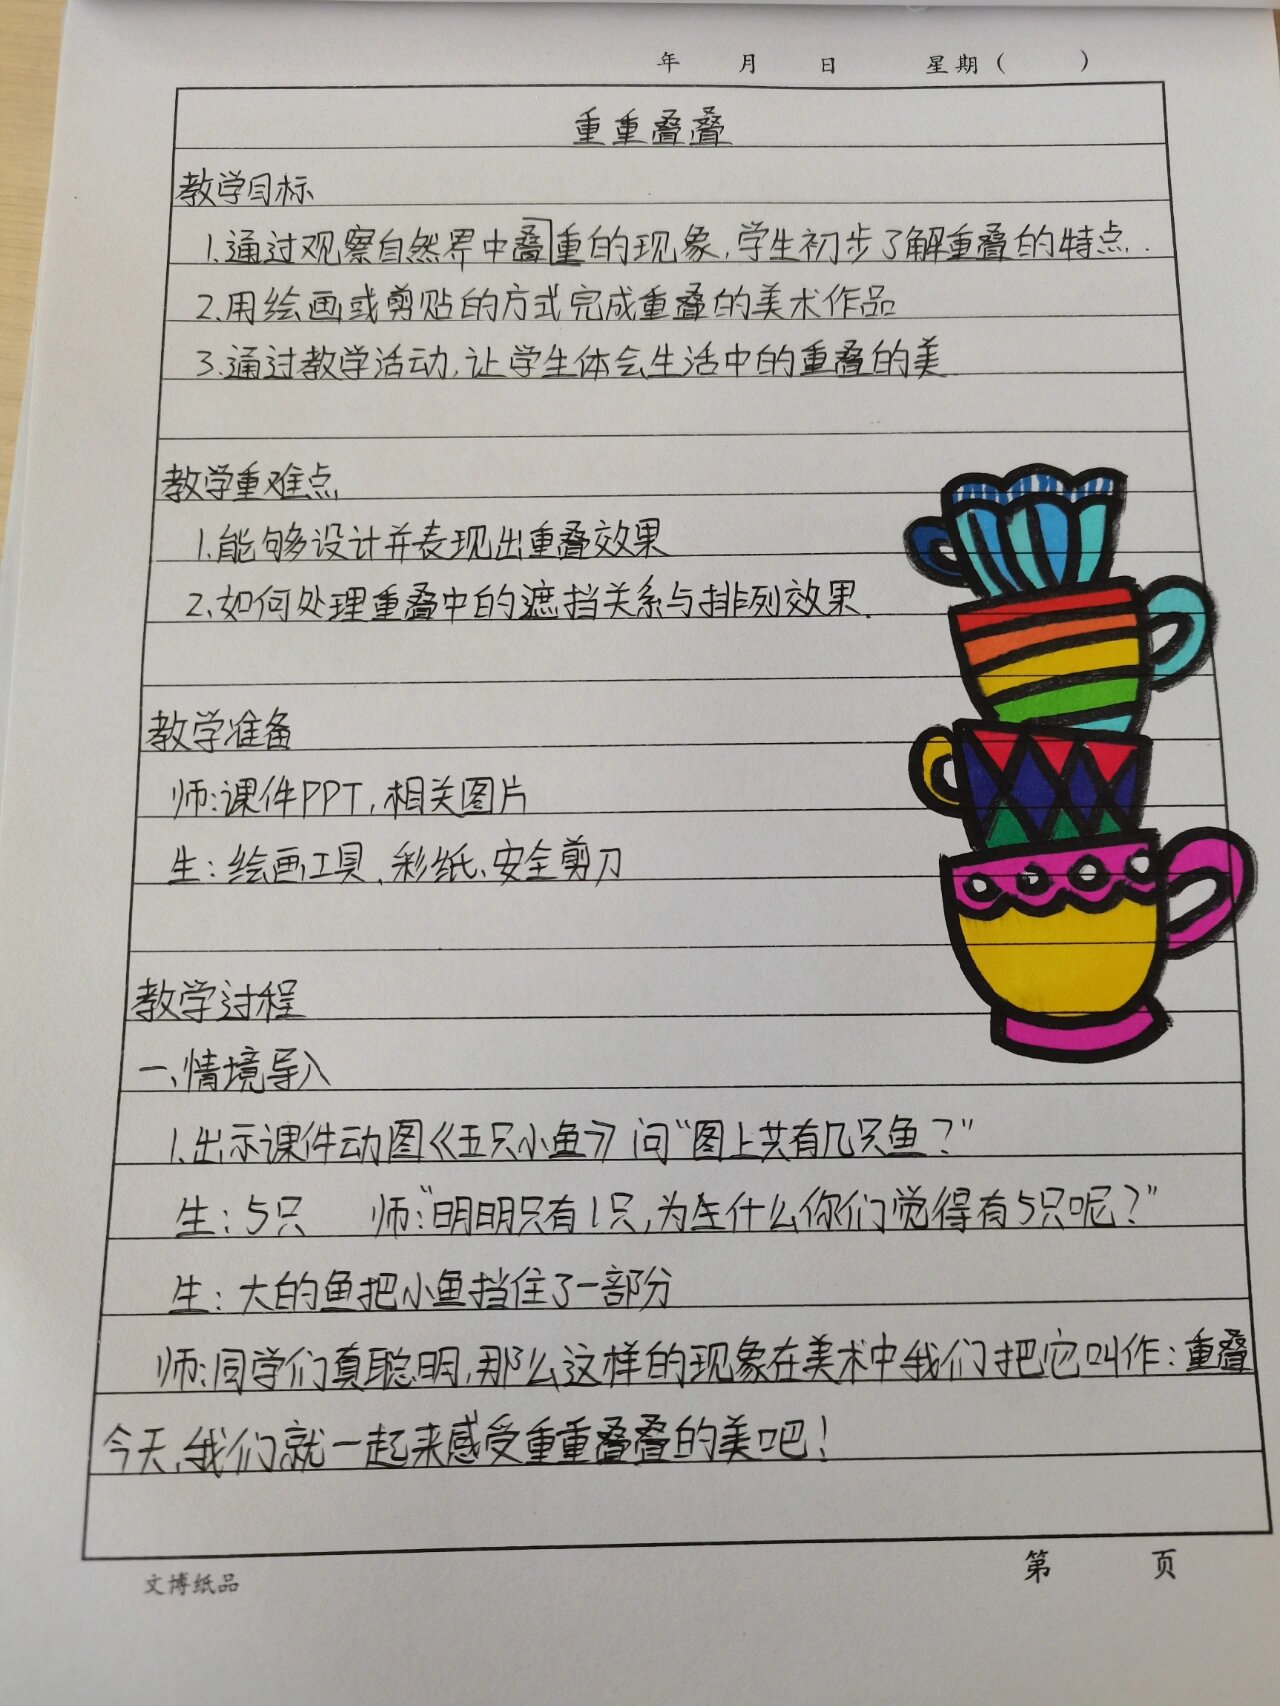 年 月 日 星期( )
重重叠叠
教学目标
1.通过观察自然界中叠重的现象,学生初步了解重叠的特点.
2.用绘画或剪贴的方式完成重叠的美术作品
3.通过教学活动,让学生体会生活中的重叠的美
教学重难点
1.能够设计并表现出重叠效果
2.如何处理重叠中的遮挡关系与排列效果.
教学准备
师:课件PPT,相关图片
生:绘画工具、彩纸、安全剪刀
教学过程
一、情境导入
1.出示课件动图《五只小鱼》问“图上共有几只鱼?”
生:5只 师:“明明只有1只,为什么你们觉得有5只呢?”
生:大的鱼把小鱼挡住了一部分
师:同学们真聪明,那么这样的现象在美术中我们把它叫作:重叠
今天,我们就一起来感受重重叠叠的美吧!
文博纸品 第 页